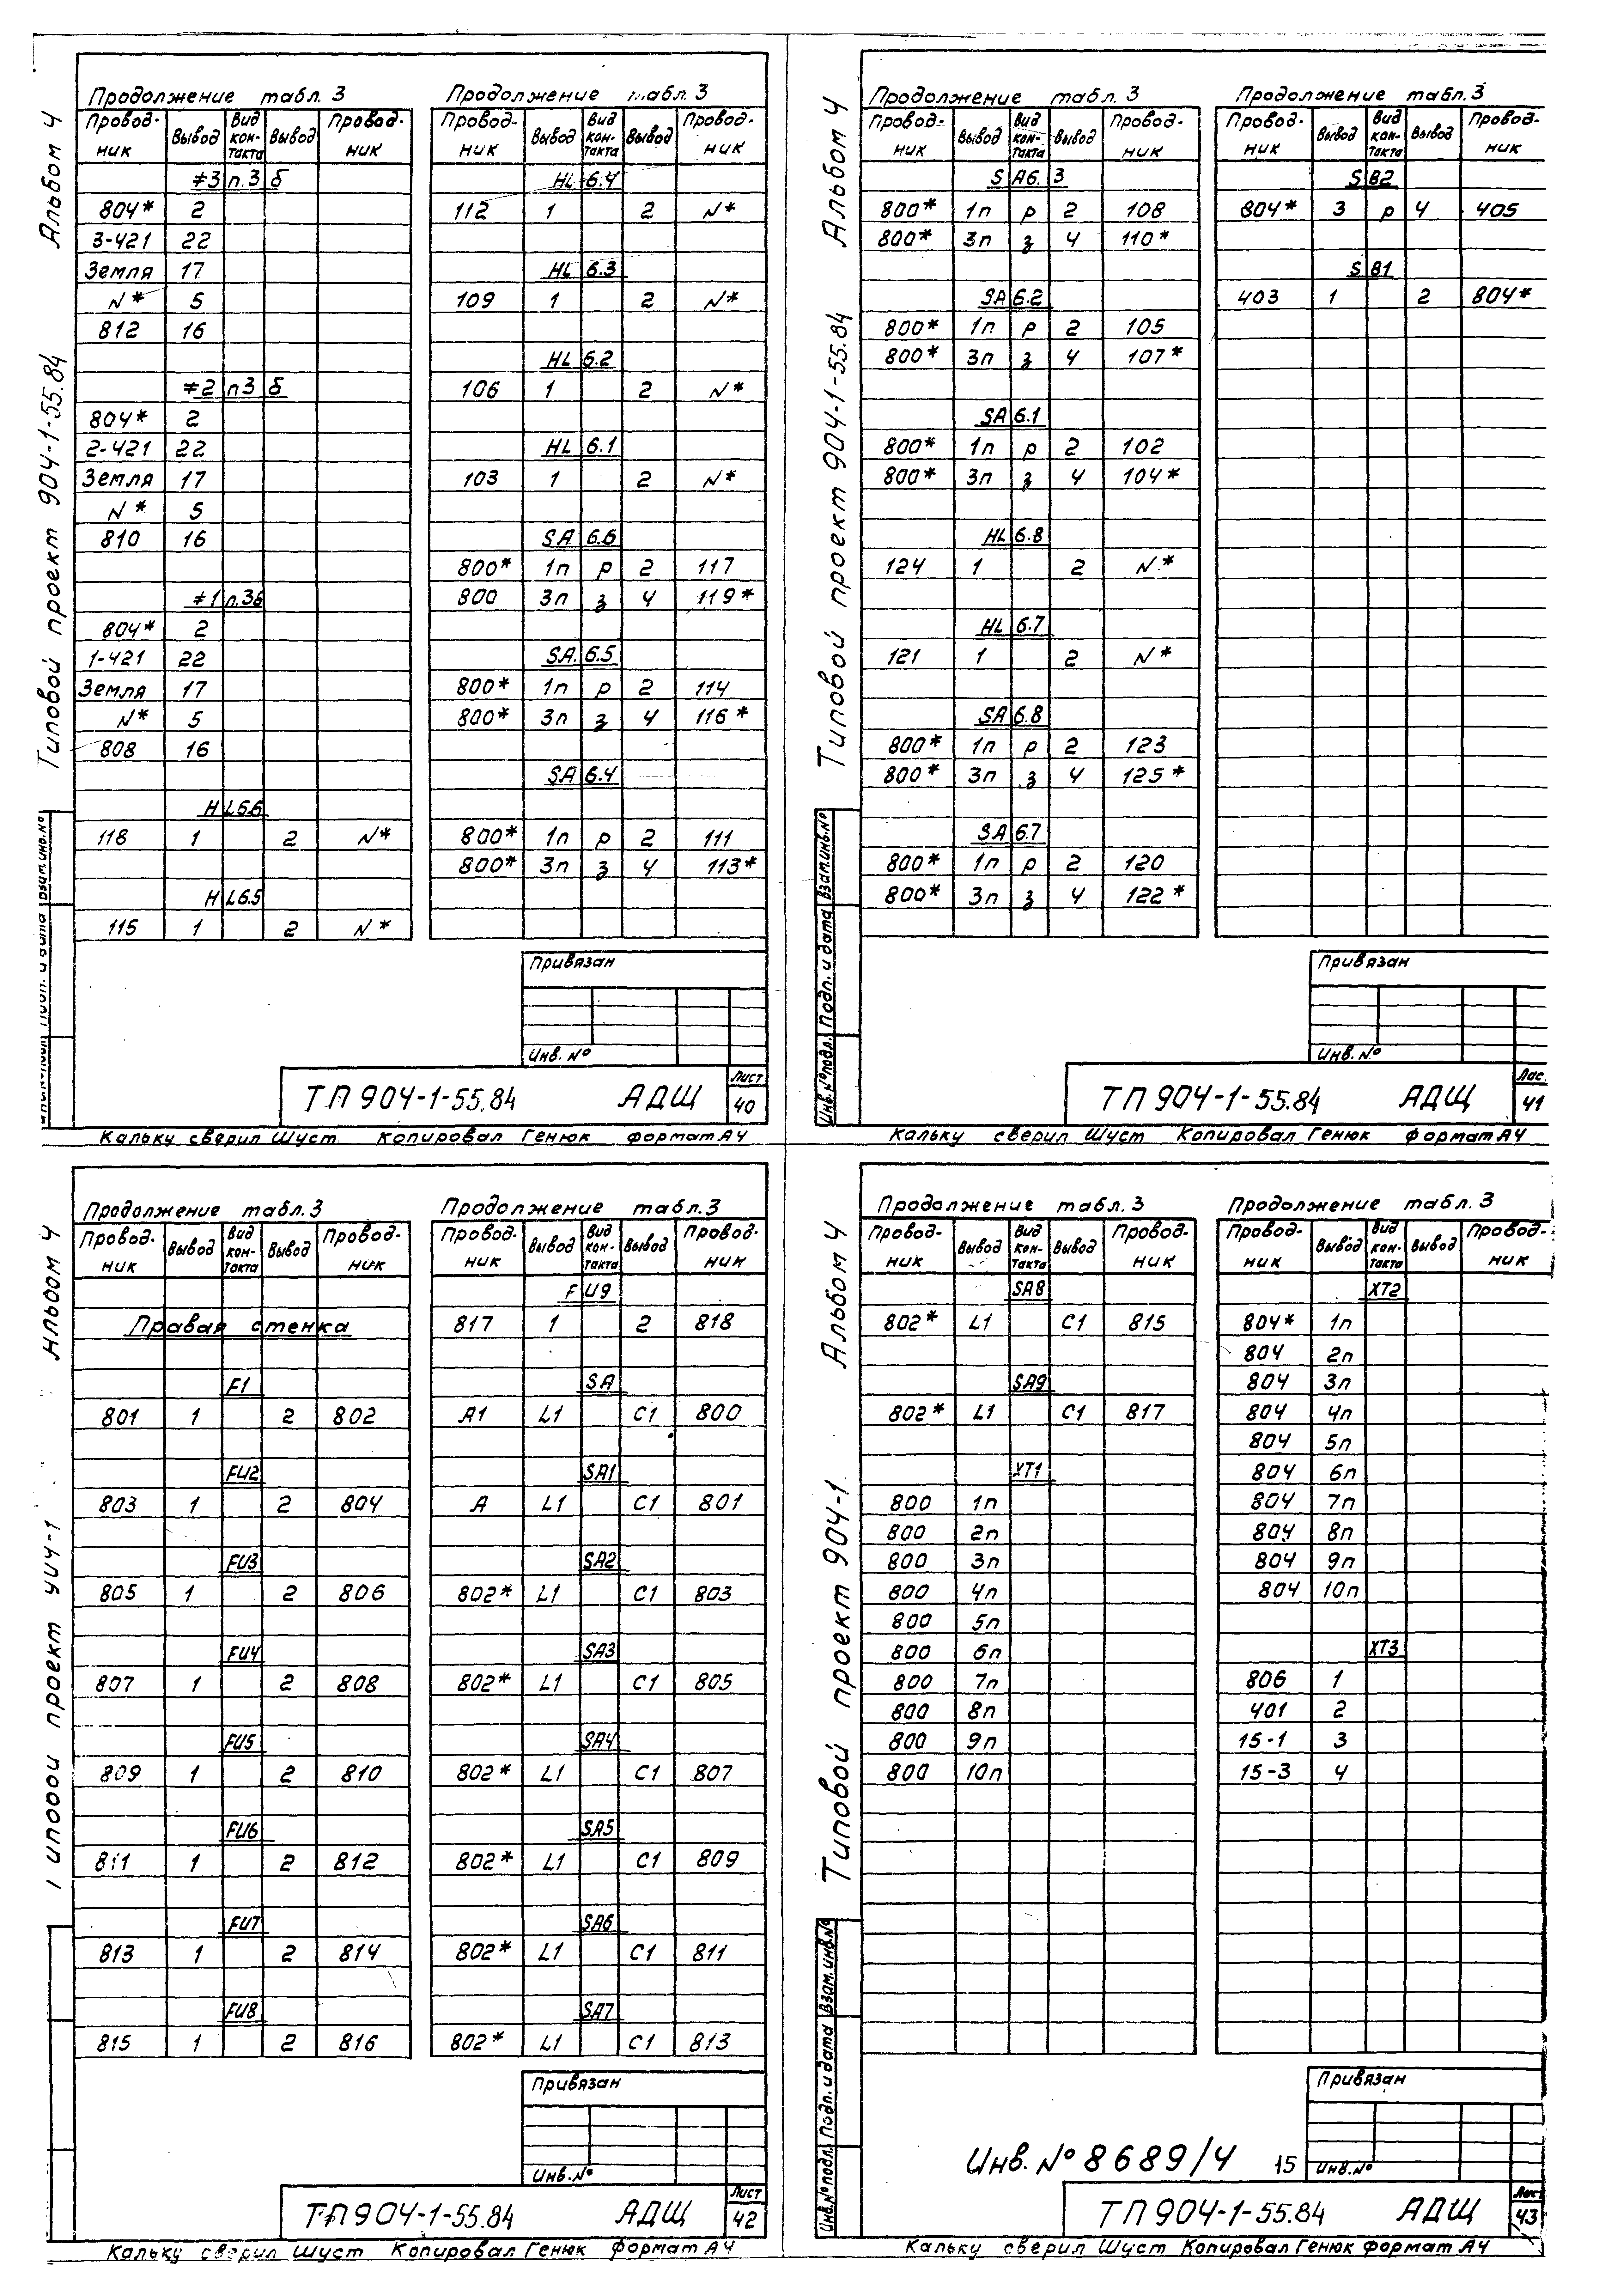 Альбом 4
Типовой проект 904-1-55.84
Продолжение табл. 3
Провод-ник Вывод Вид кон-такта Вывод Провод-ник
≠3 п.3 б
804* 2
3-421 22
Земля 17
N* 5
812 16
≠2 п3 б
804* 2
2-421 22
Земля 17
N* 5
810 16
≠1 п.3б
804* 2
1-421 22
Земля 17
N* 5
808 16
HL6.6
118 1 2 N*
HL6.5
115 1 2 N*
Продолжение табл. 3
Провод-ник Вывод Вид кон-такта Вывод Провод-ник
HL 6.4
112 1 2 N*
HL 6.3
109 1 2 N*
HL 6.2
106 1 2 N*
HL 6.1
103 1 2 N*
SA 6.6
800* 1п р 2 117
800 3п з 4 119*
SA. 6.5
800* 1п р 2 114
800* 3п з 4 116*
SA 6.4
800* 1п р 2 111
800* 3п з 4 113*
Привязан
Инв. №
ТП 904-1-55.84 АДЩ
Лист
40
Кальку сверил Шуст. Копировал Генюк формат А4
Альбом 4
Типовой проект 904-1-55.84
Взам.инв.№
Подп. и дата
Инв.№подл.
Продолжение табл. 3
Провод-ник Вывод Вид кон-такта Вывод Провод-ник
SA6.3
800* 1п р 2 108
800* 3п з 4 110*
SA 6.2
800* 1п р 2 105
800* 3п з 4 107*
SA 6.1
800* 1п р 2 102
800* 3п з 4 104*
HL 6.8
124 1 2 N*
HL 6.7
121 1 2 N*
SA 6.8
800* 1п р 2 123
800* 3п з 4 125*
SA 6.7
800* 1п р 2 120
800* 3п з 4 122*
Продолжение табл. 3
Провод-ник Вывод Вид кон-такта Вывод Провод-ник
SB2
804* 3 р 4 405
SB1
403 1 2 804*
Привязан
Инв. №
ТП 904-1-55.84 АДЩ
Лис.
41
Кальку сверил Шуст Копировал Генюк формат А4
проект
Продолжение табл. 3
Провод-ник Вывод Вид кон-такта Вывод Провод-ник
Правая стенка
F1
801 1 2 802
FU2
803 1 2 804
FU3
805 1 2 806
FU4
807 1 2 808
FU5
809 1 2 810
FU6
811 1 2 812
FU7
813 1 2 814
FU8
815 1 2 816
Продолжение табл. 3
Провод-ник Вывод Вид кон-такта Вывод Провод-ник
FU9
817 1 2 818
SA
A1 L1 C1 800
SA1
A L1 C1 801
SA2
802* L1 C1 803
SA3
802* L1 C1 805
SA4
802* L1 C1 807
SA5
802* L1 C1 809
SA6
802* L1 C1 811
SA7
802* L1 C1 813
Привязан
Инв.№
ТП 904-1-55.84 АДЩ
Лист
42
Кальку сверил Шуст Копировал Генюк формат А4
Альбом 4
Типовой проект 904-1
Взам.инв.№
Подп. и дата
Инв.№подл.
Продолжение табл. 3
Провод-ник Вывод Вид кон-такта Вывод Провод-ник
SA8
802* L1 C1 815
SA9
802* L1 C1 817
XT1
800 1п
800 2п
800 3п
800 4п
800 5п
800 6п
800 7п
800 8п
800 9п
800 10п
Продолжение табл. 3
Провод-ник Вывод Вид кон-такта Вывод Провод-ник
XT2
804* 1п
804 2п
804 3п
804 4п
804 5п
804 6п
804 7п
804 8п
804 9п
804 10п
XT3
806 1
401 2
15-1 3
15-3 4
Инв. № 8689/4 15
Привязан
Инв.№
ТП 904-1-55.84 АДЩ
Лист
43
Кальку сверил Шуст Копировал Генюк формат А4